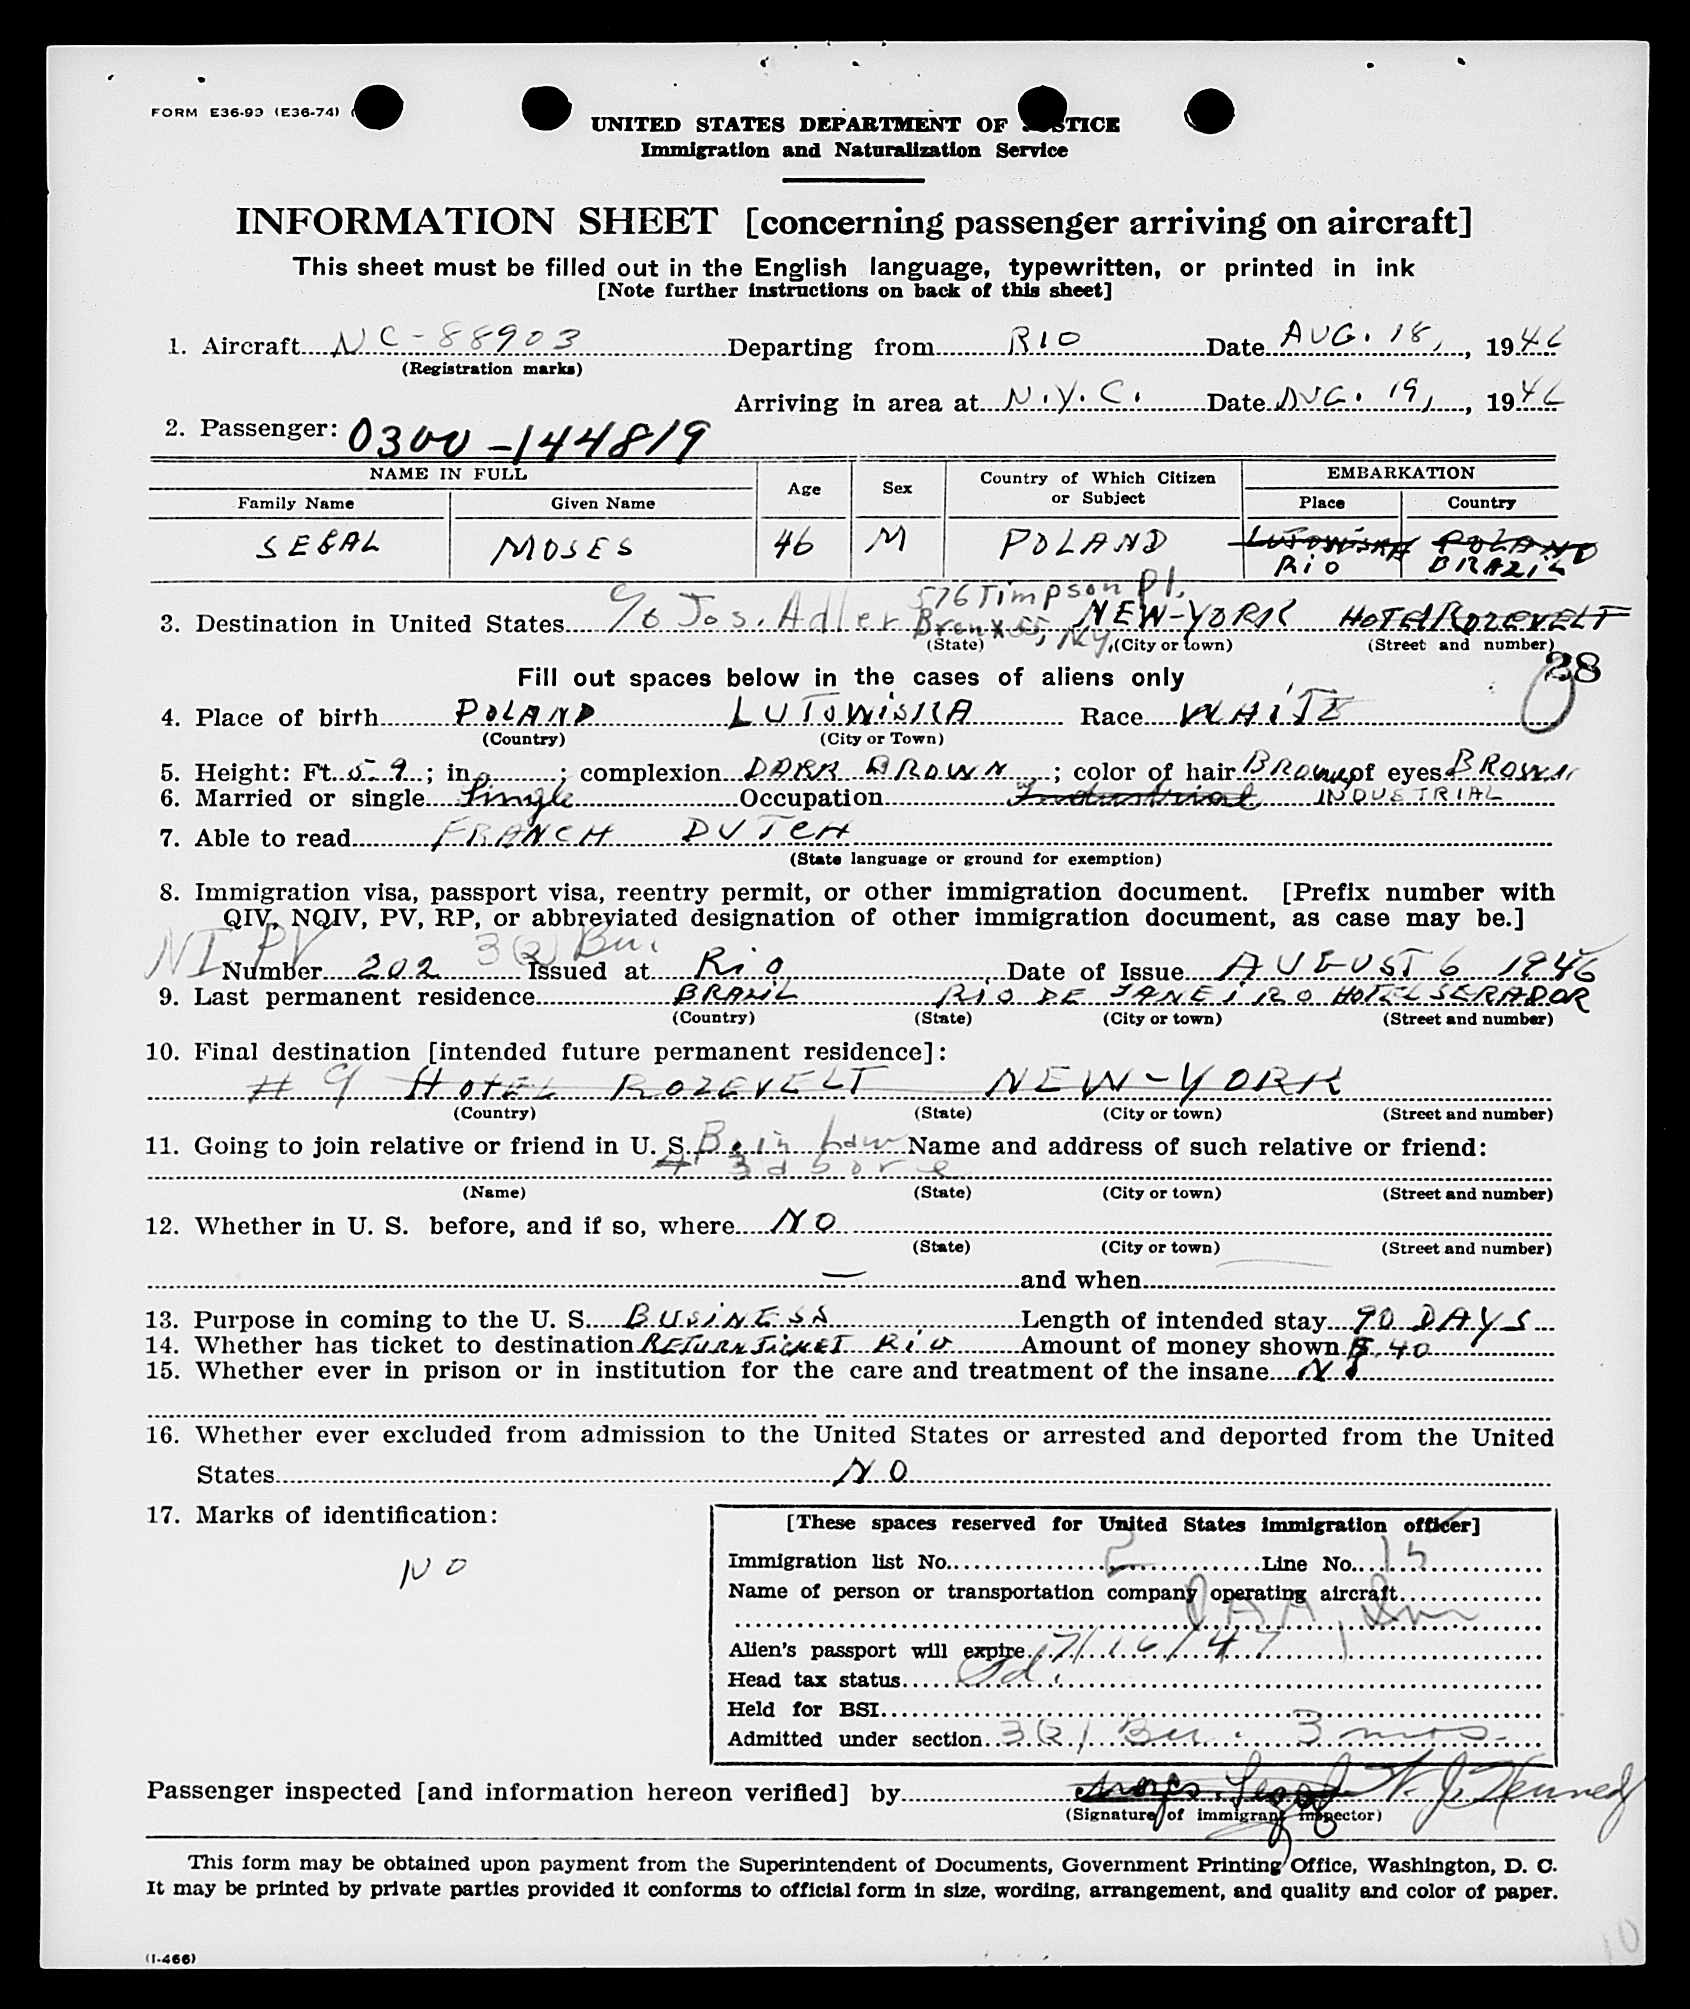 FORM E36-93 (E36-74)
UNITED STATES DEPARTMENT OF JUSTICE
Immigration and Naturalization Service
INFORMATION SHEET [concerning passenger arriving on aircraft]
This sheet must be filled out in the English language, typewritten, or printed in ink
[Note further instructions on back of this sheet]
1. Aircraft NC-88903 Departing from RIO Date AUG. 18, 1946
(Registration marks)
Arriving in area at N.Y.C. Date AUG. 19, 1946
2. Passenger: 0300-144819
NAME IN FULL Age Sex Country of Which Citizen or Subject EMBARKATION
Family Name Given Name Place Country
SEGAL MOSES 46 M POLAND LUTOWISKA POLAND
RIO BRAZIL
576 Timpson Pl.
3. Destination in United States c/o Jos. Adler Bronx 55, NY. NEW-YORK HOTEL ROZEVELT
(State) (City or town) (Street and number)
28
Fill out spaces below in the cases of aliens only
4. Place of birth POLAND LUTOWISKA Race WHITE
(Country) (City or Town)
5. Height: Ft. 5.9; in.; complexion DARK BROWN; color of hair BROWN of eyes BROWN
6. Married or single Single Occupation Industrial INDUSTRIAL
7. Able to read FRANCH DUTCH
(State language or ground for exemption)
8. Immigration visa, passport visa, reentry permit, or other immigration document. [Prefix number with
QIV, NQIV, PV, RP, or abbreviated designation of other immigration document, as case may be.]
NI PV 3(2) Bu.
Number 202 Issued at Rio Date of Issue AUGUST 6 1946
9. Last permanent residence BRAZIL RIO DE JANEIRO HOTEL SERADOR
(Country) (State) (City or town) (Street and number)
10. Final destination [intended future permanent residence]:
# 9 HOTEL ROZEVELT NEW-YORK
(Country) (State) (City or town) (Street and number)
11. Going to join relative or friend in U. S. B. in law Name and address of such relative or friend:
# 3 above
(Name) (State) (City or town) (Street and number)
12. Whether in U. S. before, and if so, where NO
(State) (City or town) (Street and number)
— and when
13. Purpose in coming to the U. S. BUSINESS Length of intended stay 90 DAYS
14. Whether has ticket to destination RETURN TICKET RIO Amount of money shown $ 40
15. Whether ever in prison or in institution for the care and treatment of the insane NO
16. Whether ever excluded from admission to the United States or arrested and deported from the United
States NO
17. Marks of identification:
NO
[These spaces reserved for United States immigration officer]
Immigration list No. 2 Line No. 15
Name of person or transportation company operating aircraft
PAA, Inc
Alien's passport will expire 7/16/47
Head tax status Pd.
Held for BSI
Admitted under section 3(2) Bu. 3 mos.
Passenger inspected [and information hereon verified] by Moses Segal W. J. Kennedy
(Signature of immigrant inspector)
This form may be obtained upon payment from the Superintendent of Documents, Government Printing Office, Washington, D. C.
It may be printed by private parties provided it conforms to official form in size, wording, arrangement, and quality and color of paper.
(I-466)
10